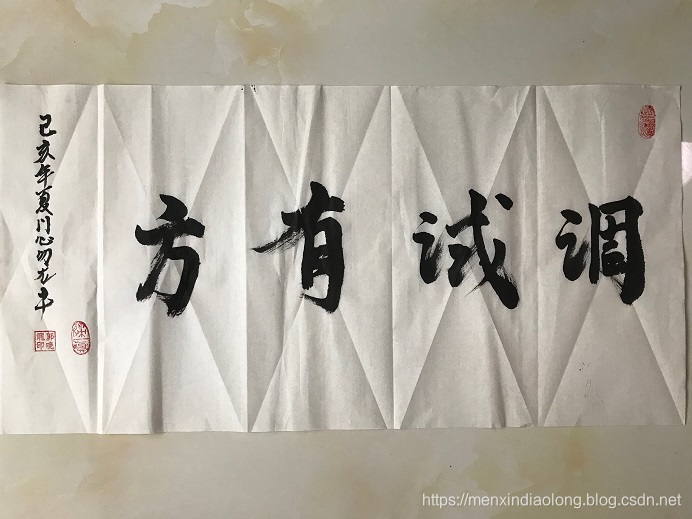 调试有方
己亥年夏门心
https://menxindiaolong.blog.csdn.net